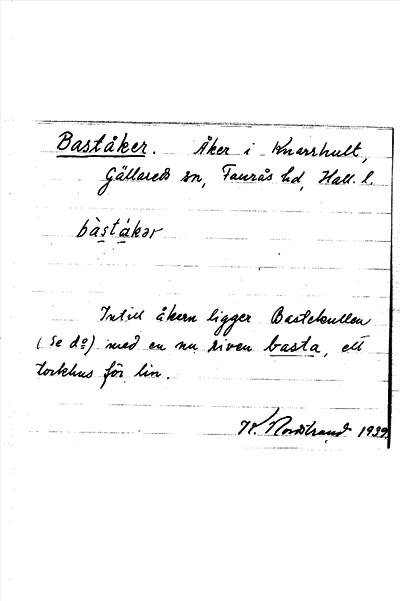 Baståker. Åker i Knarrhult,
Gällareds sn, Faurås hd, Hall. l.
bàståkər
Intill åkern ligger Bastekullen
(se d:o) med en nu riven basta, ett
torkhus för lin.
K. Nordstrand 1939.